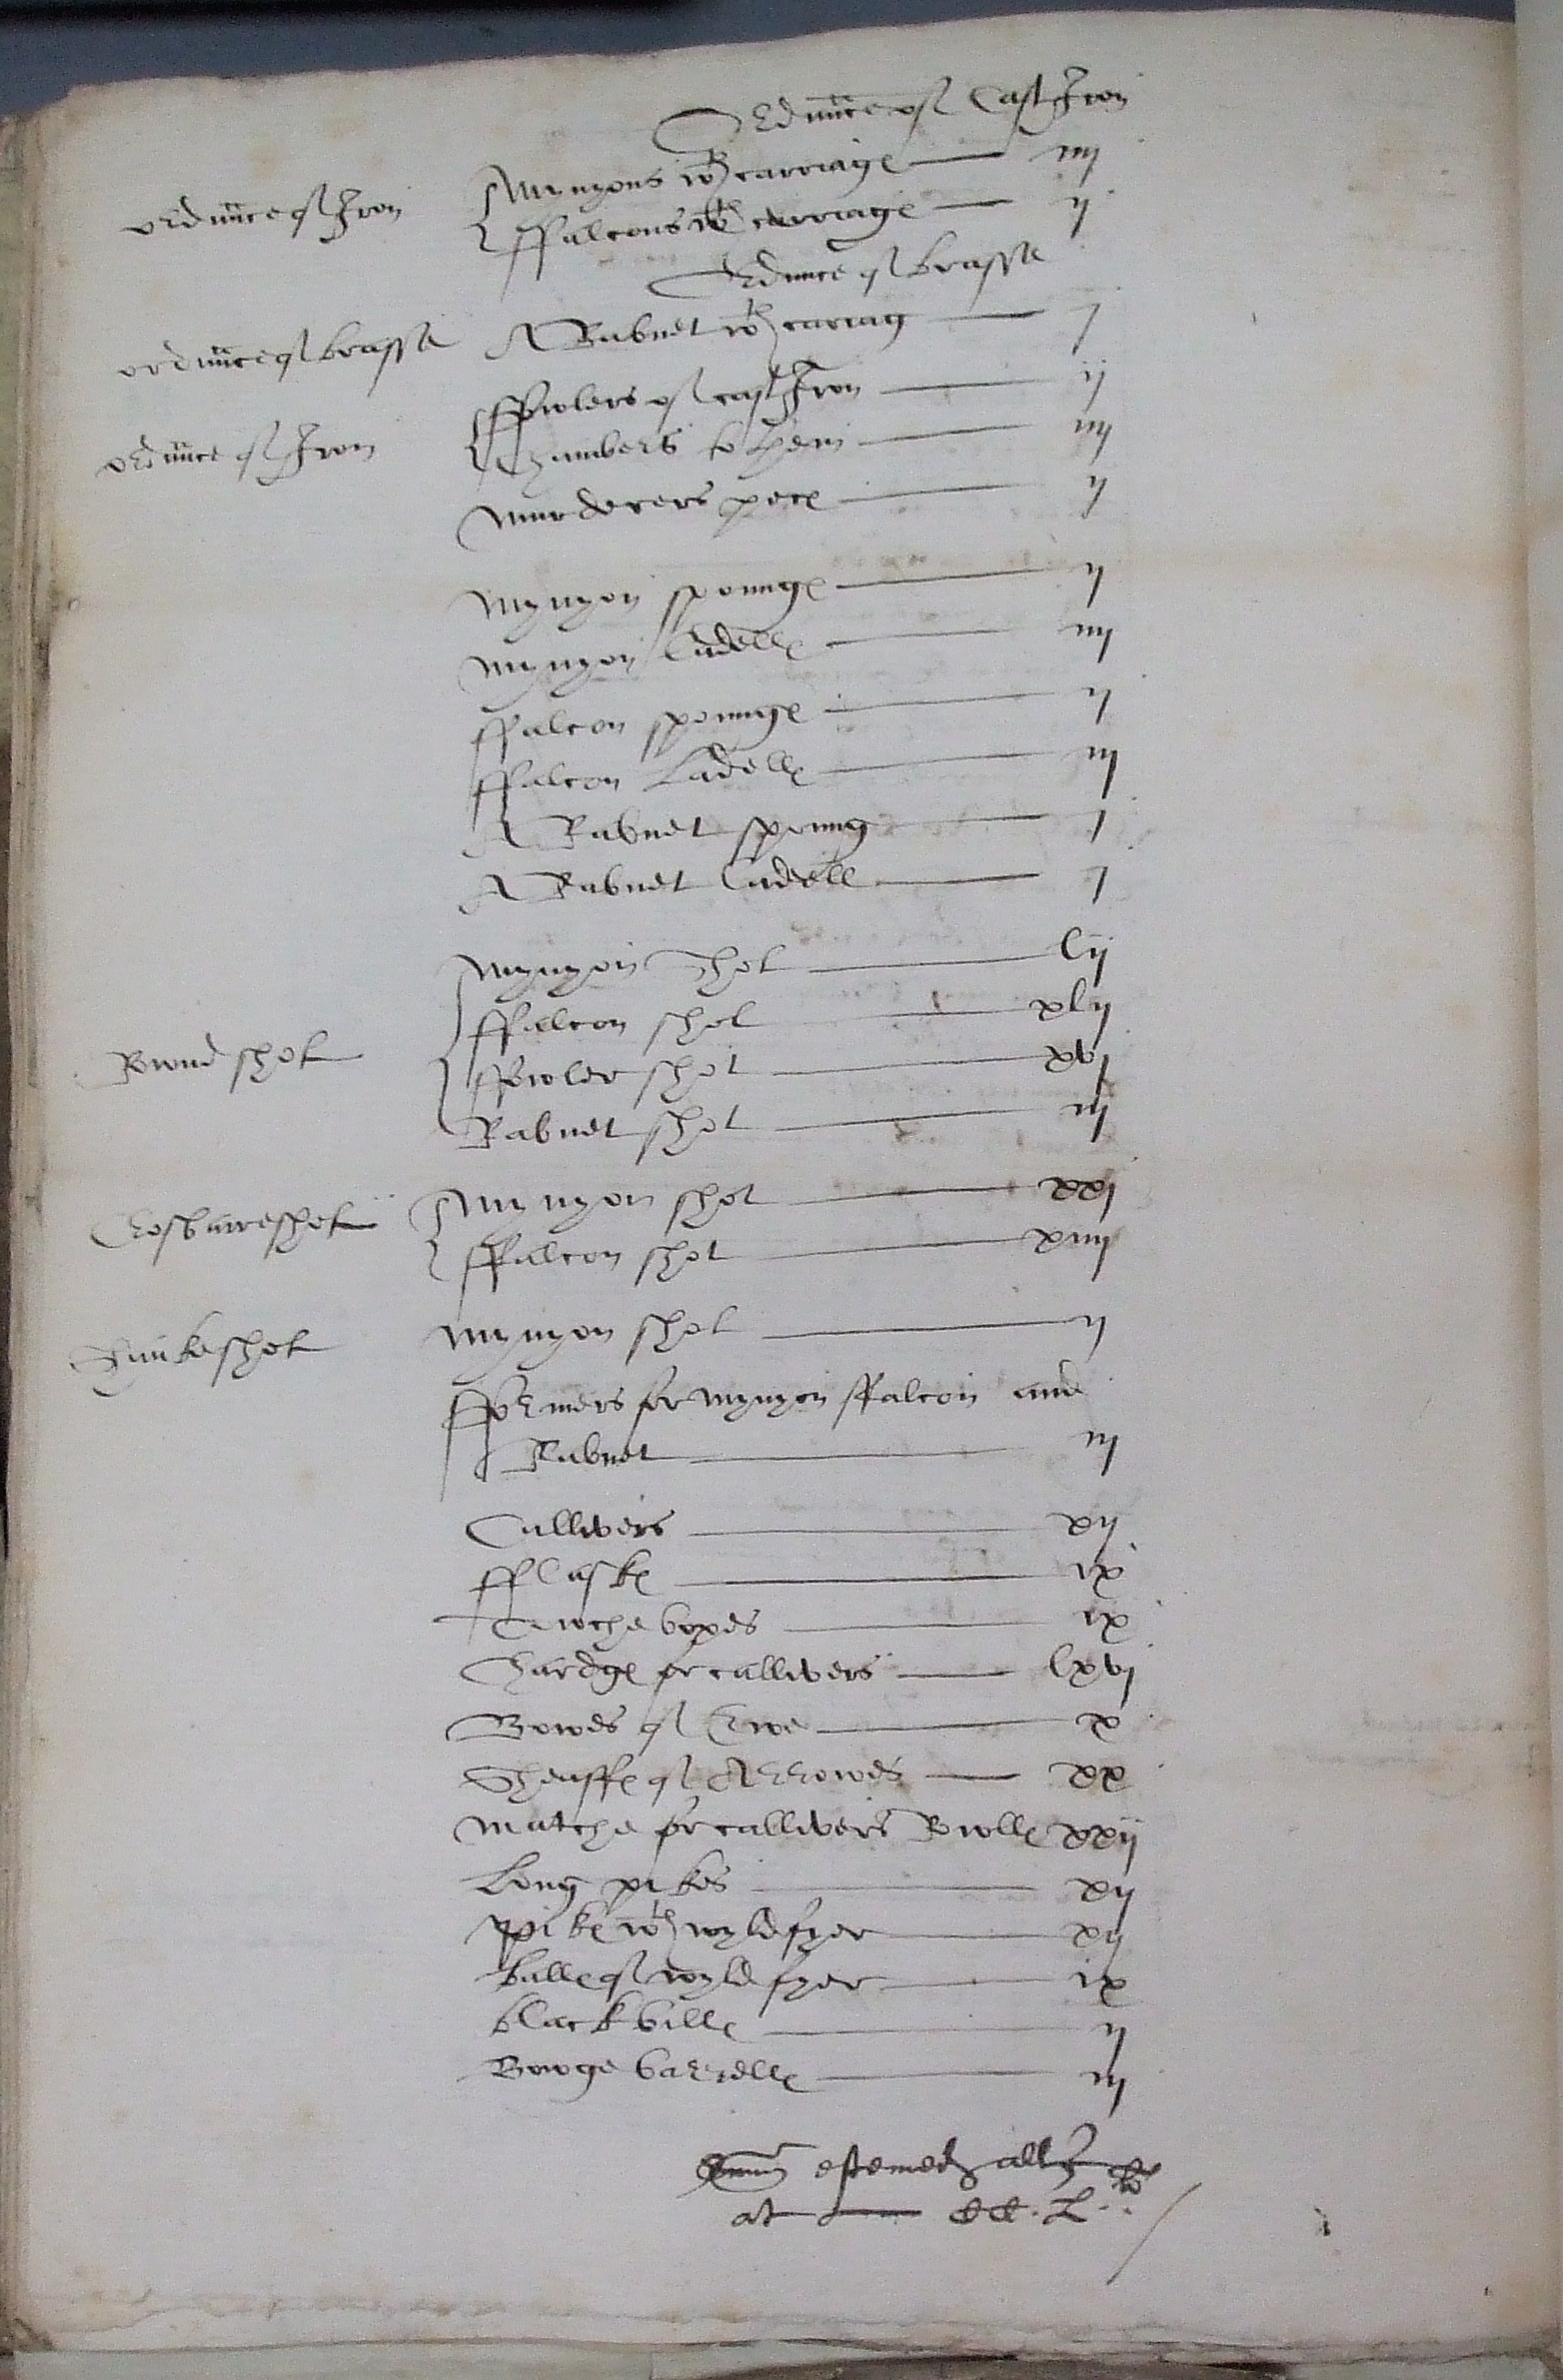 Ordnnce of Cast Iron
ordnnce of Iron Mynyons wth carriage — iiij
ffalcons wth carriage — ij
Ordnnce of brasse
ordnnce of brasse A Rabnet wth cariag — j
ffowlers of cast Iron — ij
ordnnce of Iron Chambers to them — iiij
Murderers pece — ij
Mynyon spounge — ij
Mynyon ladelle — iiij
ffalcon spounge — ij
ffalcon Ladelle — iij
A Rabnet spoung — j
A Rabnet Ladell — j
Mynyon Shot — lij
ffalcon shot — xlij
Round shot ffowler shot — xvj
Rabnet shot — iij
Crosbarreshot Mynyon shot — xxj
ffalcon shot — xiiij
Lynkeshot Mynyon shot — ij
fformers for mynyon ffalcon and
Rabnet — iij
Callivers — xij
fflaske — ix
Tuche boxes — ix
Chardge for callivers — lxvj
Bowes of Ewe — x
Sheaffe of Arrowes — xx
Matche for callivers Rolle xxij
Long pikes — xij
Pike wth wyldfyer — xij
balle of wyldfyer — ix
black bille — ij
Bowge barrelle — iij
estemed all
at — CC. L